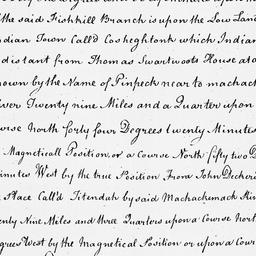 the said Fishkill Branch is upon the Low Land
ndian Town Call'd Cosheghtonk which Indian
distant from Thomas Swartwoots House at
nown by the Name of Pinpeck near to machac
iver Twenty nine Miles and a Quarter upon
urse North forty four Degrees twenty Minutes
Magneticall Position, or a Course North fifty two D
inutes West by the true Position From John Decker
Place Call'd Titendah by said Machackamack
enty Nine Miles and three Quarters upon a Course North
grees West by the Magnetical Position or upon a Cour